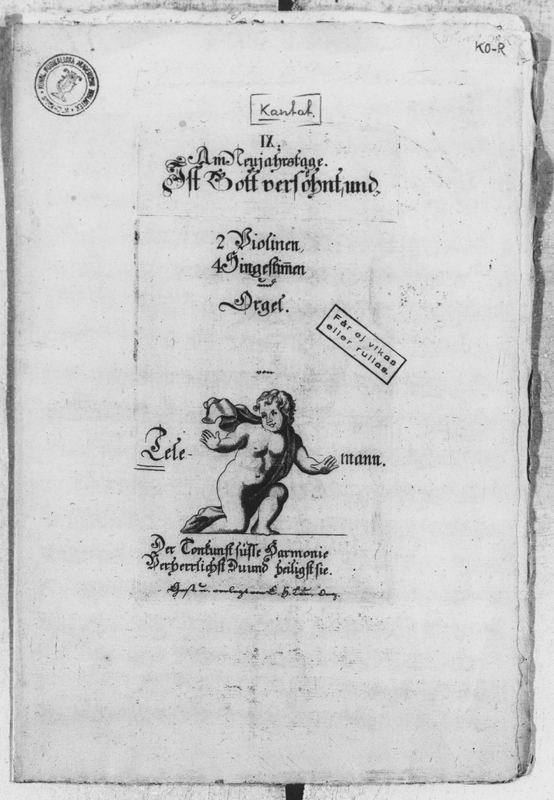 KO-R
Kantat.
IX.
Am Neujahrstage.
Ist Gott versöhnt, und,
2 Violinen,
4 Singestim̅en
und
Orgel.
Får ej vikas
eller rullas.
von
Tele- mann.
Der Tonkunst süsse Harmonie
Verherrlichst Du und heiligst sie.